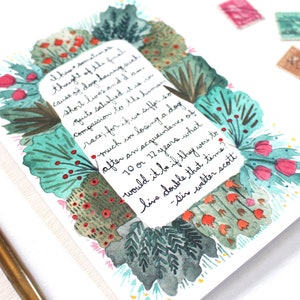 i have sometimes
thought of the final
cause of dogs having such
short lives and i am
quite satisfied it is in
compassion to the human
race for if we suffer so
much in losing a dog
after an acquaintance of
10 or 12 years what
would it be if they were to
live double that time
-sir walter scott